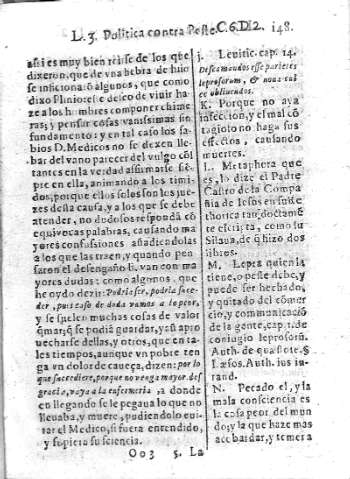 L. 3. Politica contra Peste. C. 6. D12. 148.
assi es muy bien reirse de los que
dixeron, que de vna hebra de hilo
se inficionarõ algunos, que como
dixo Plinio es el deseo de viuir ha
ze a los hombres componer chime
ras; y pensar cosas vanissimas sin
fundamento: y en tal caso los sa-
bios D. Medicos no se dexen lle-
bar del vano parecer del vulgo cõs
tantes en la verdad afirmarse siẽ-
pre en ella, animando a los timi-
dos, porque ellos solos son los jue-
zes desta causa, y a los que se debe
atender, no dudosos respondã cõ
equivocas palabras, causando ma
yores confusiones añadiendolas
a los que las traen, y quando pen-
saron el desengaño lleuan con ma
yores dudas: como algunos que
he oydo dezir: Podria ser, podria suce-
der, pues caso de duda vamos a lo peor,
y se suelen muchas cosas de valor
q̃mar; q̃ se podiã guardar, y est aprò
uecharse dellas, y otros, que en ta-
les tiempos, aunque vn pobre ten
ga vn dolor de caueça, dizen: por lo
que sucediere, porque no venga mayor des
gracia, vaya a la enfermeria, a donde
en llegando se le pegara lo que no
lleuaba, y muere, pudiendolo eui-
tar el Medico, si fuera entendido,
y supiera su ciencia.
j. Leuitic. cap. 14.
Descamandos esse parietes
leprosorum, & noua cal-
ce obliuendos.
K. Porque no aya
infeccion, y el mal cõ
tagioso no haga sus
efectos, causando
muertes.
L. Metaphora que
es, lo dize el Padre
Castro de la Compa
ñia de Iesus en su Re
thorica tan doctamẽ
te escrita, como su
Silaua, de q̃ hizo dos
libros.
M. Lepra quien la
tiene, o peste debe, y
puede ser hechado,
y quitado del comer
cio, y communicaciõ
de la gente, cap. 1. de
coniugio leprosorũ.
Auth. de quæstore. §
Læsos. Auth. ius iu-
rand.
N. Pecado el, y la
mala consciencia es
la cosa peor del mun
do; y la que haze mas
acobardar, y temer a
Oo 3 5. La